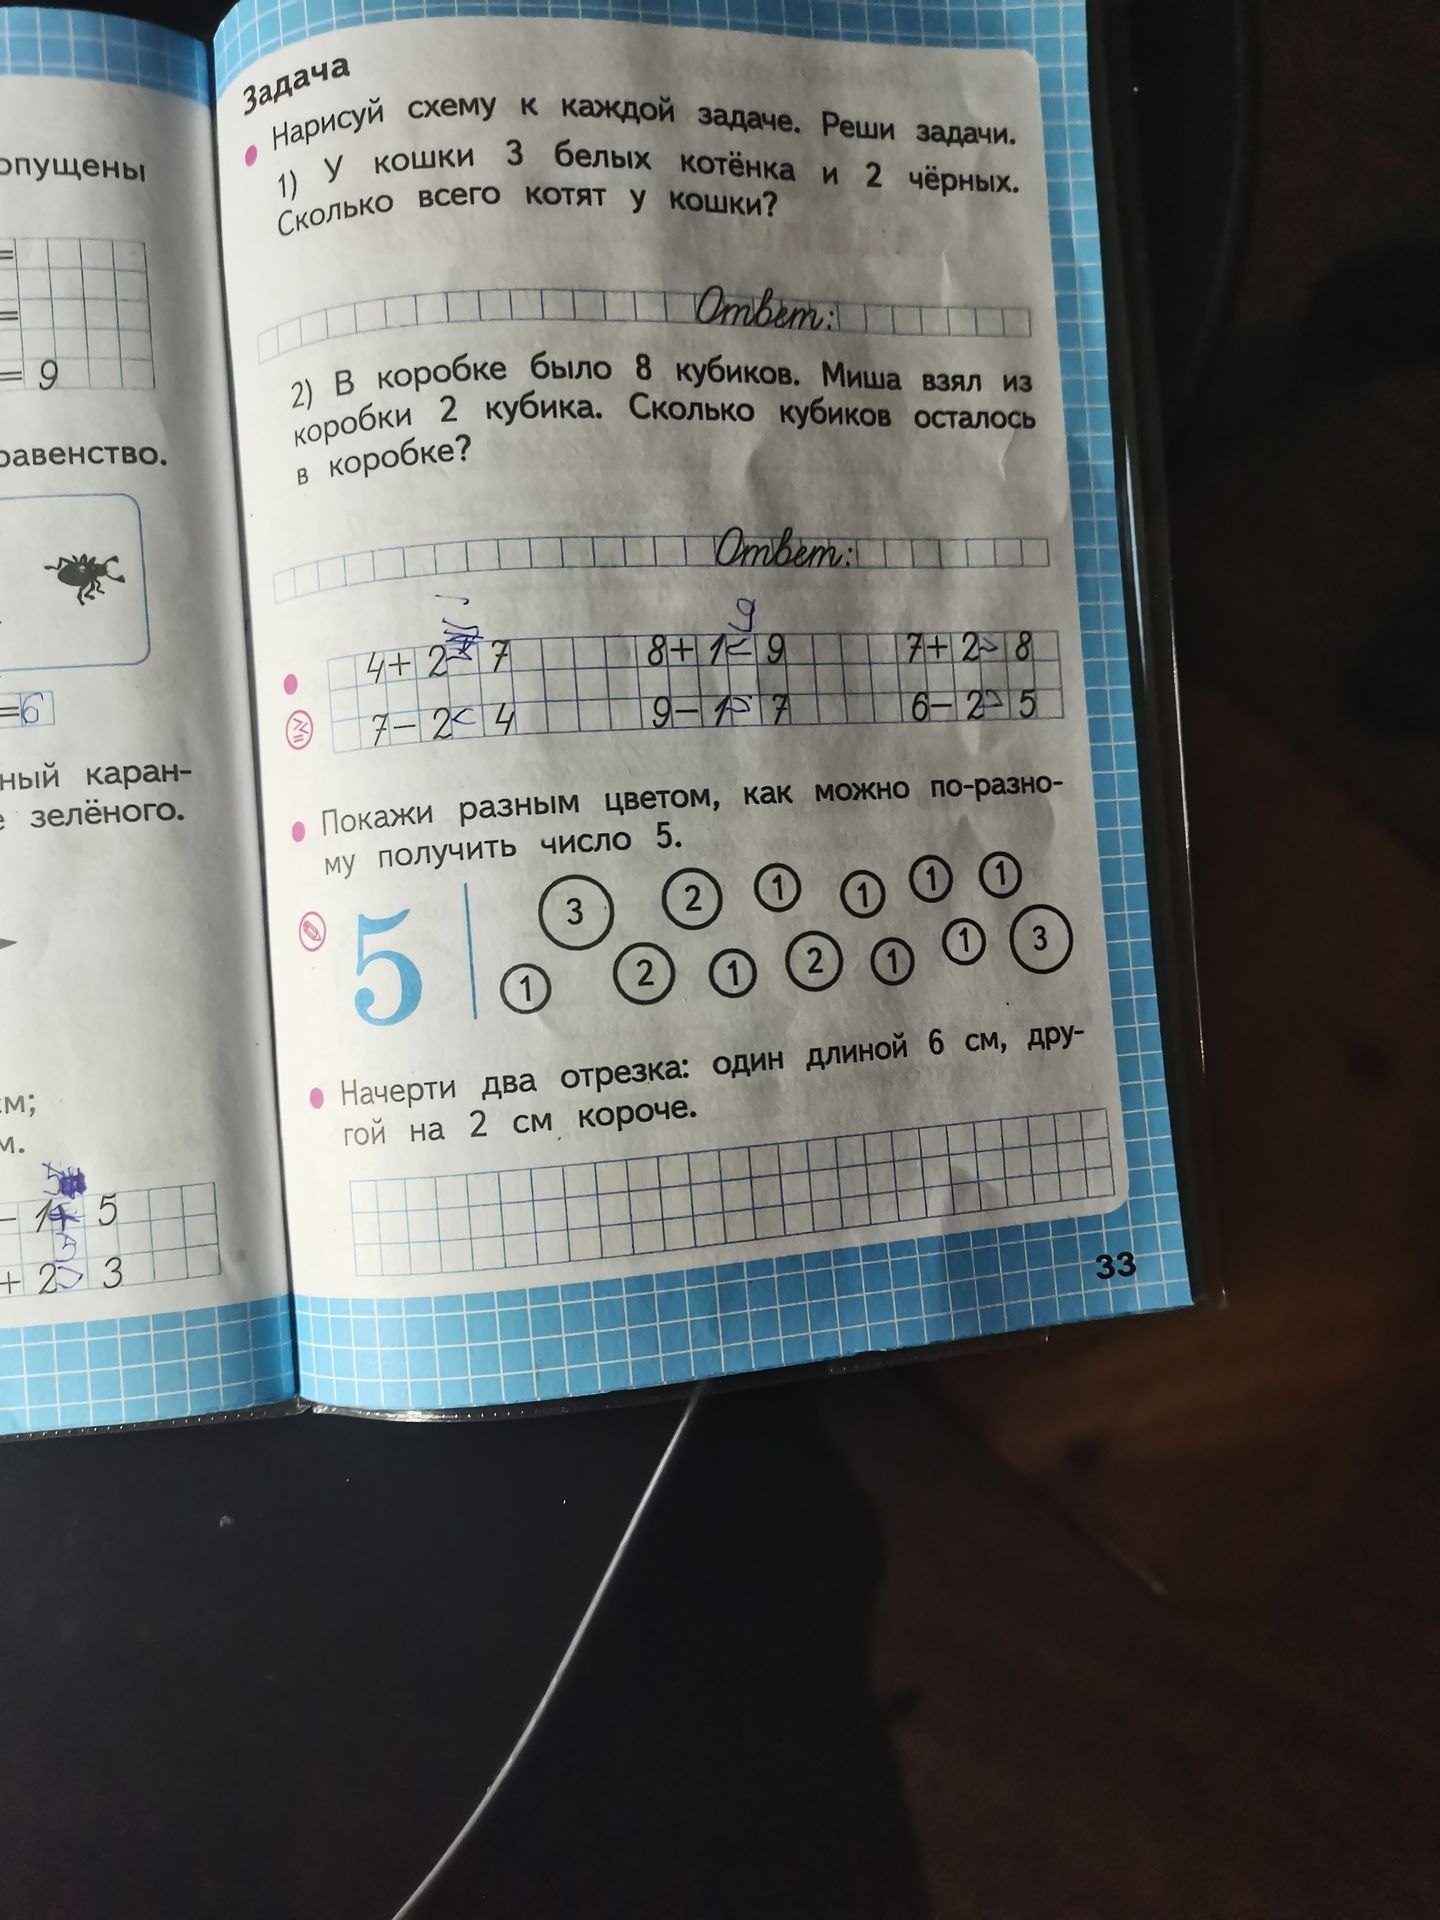 опущены
=
=
= 9
равенство.
=6
ный каран-
е зелёного.
см;
м.
5
– 1 5
5
+ 2> 3
Задача
Нарисуй схему к каждой задаче. Реши задачи.
1) У кошки 3 белых котёнка и 2 чёрных.
Сколько всего котят у кошки?
Ответ:
2) В коробке было 8 кубиков. Миша взял из
коробки 2 кубика. Сколько кубиков осталось
в коробке?
Ответ:
9
4+ 2 7 8+ 1< 9 7+ 2> 8
7– 2< 4 9– 1> 7 6– 2> 5
Покажи разным цветом, как можно по-разно-
му получить число 5.
5
3 2 1 1 1 1
1 2 1 2 1 1 3
Начерти два отрезка: один длиной 6 см, дру-
гой на 2 см короче.
33